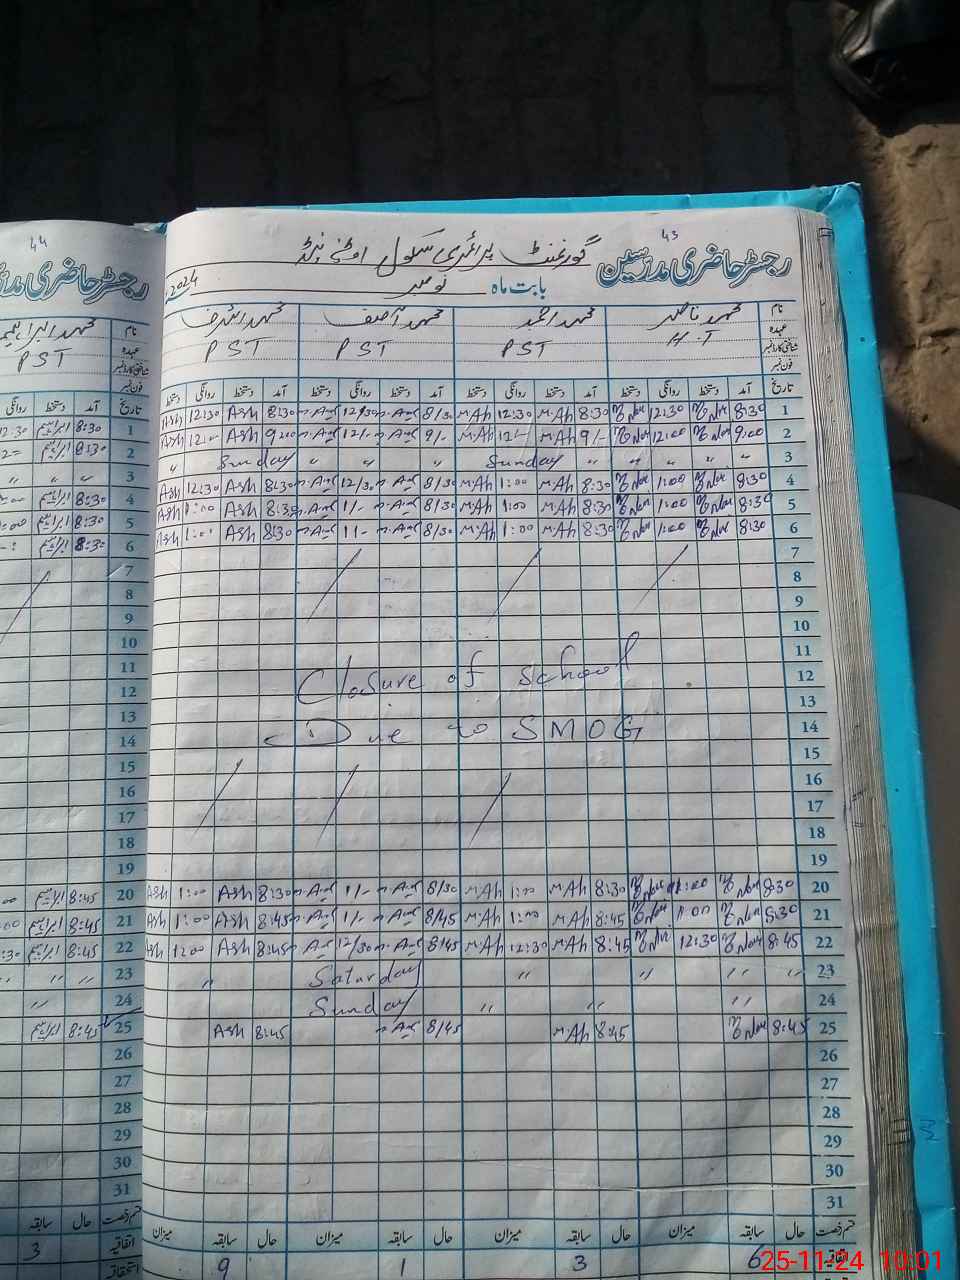 44
43
رجسٹر حاضری مدرسین
گورنمنٹ پرائمری سکول
بابت ماہ نومبر 2024
نام محمد ناصر محمد احمد محمد آصف محمد اشرف
عہدہ H.T PST PST PST
شناختی کارڈ نمبر
فون نمبر
تاریخ آمد دستخط روانگی دستخط آمد دستخط روانگی دستخط آمد دستخط روانگی دستخط آمد دستخط روانگی دستخط
1 8:30 12:30 8:30 M.Ah 12:30 M.Ah 8/30 12/30 8:30 Ash 12:30 Ash
2 9:00 12:00 9/- M.Ah 12/- M.Ah 9/- 12/- 9:00 Ash 12:00 Ash
3 " " " " " " Sunday " " " Sunday "
4 8:30 1:00 8:30 M.Ah 1:00 M.Ah 8/30 12/30 8:30 Ash 12:30 Ash
5 8:30 1:00 8:30 M.Ah 1:00 M.Ah 8/30 1/- 8:30 Ash 1:00 Ash
6 8:30 1:00 8:30 M.Ah 1:00 M.Ah 8/30 1/- 8:30 Ash 1:00 Ash
7
8
9
10
11
12 Closure of School
13
14 Due to SMOG
15
16
17
18
19
20 8:30 8:30 M.Ah 1:00 M.Ah 8/30 1/- 8:30 Ash 1:00 Ash
21 8:30 1:00 8:45 M.Ah 1:00 M.Ah 8/45 1/- 8:45 Ash 1:00 Ash
22 8:45 12:30 8:45 M.Ah 12:30 M.Ah 8/45 12/30 8:45 Ash 1:00 Ash
23 " " " " Saturday "
24 " " " Sunday
25 8:45 8:45 M.Ah 8/45 8:45 Ash
26
27
28
29
30
31
قسم رخصت حال سابقہ میزان حال سابقہ میزان حال سابقہ میزان حال سابقہ میزان
اتفاقیہ 6 3 1 9
رجسٹر حاضری
محمد ابراہیم
PST
تاریخ آمد دستخط روانگی
1 8:30 ابراہیم 12:30
2 8:30 ابراہیم
3 " " "
4 8:30 ابراہیم
5 8:30 ابراہیم
6 8:30 ابراہیم
7
8
9
10
11
12
13
14
15
16
17
18
19
20 8:45 ابراہیم
21 8:45 ابراہیم
22 8:45 ابراہیم
23 " "
24 "
25 8:45 ابراہیم
26
27
28
29
30
31
قسم رخصت حال سابقہ
اتفاقیہ 3
استحقاقیہ
25-11-24 10:01